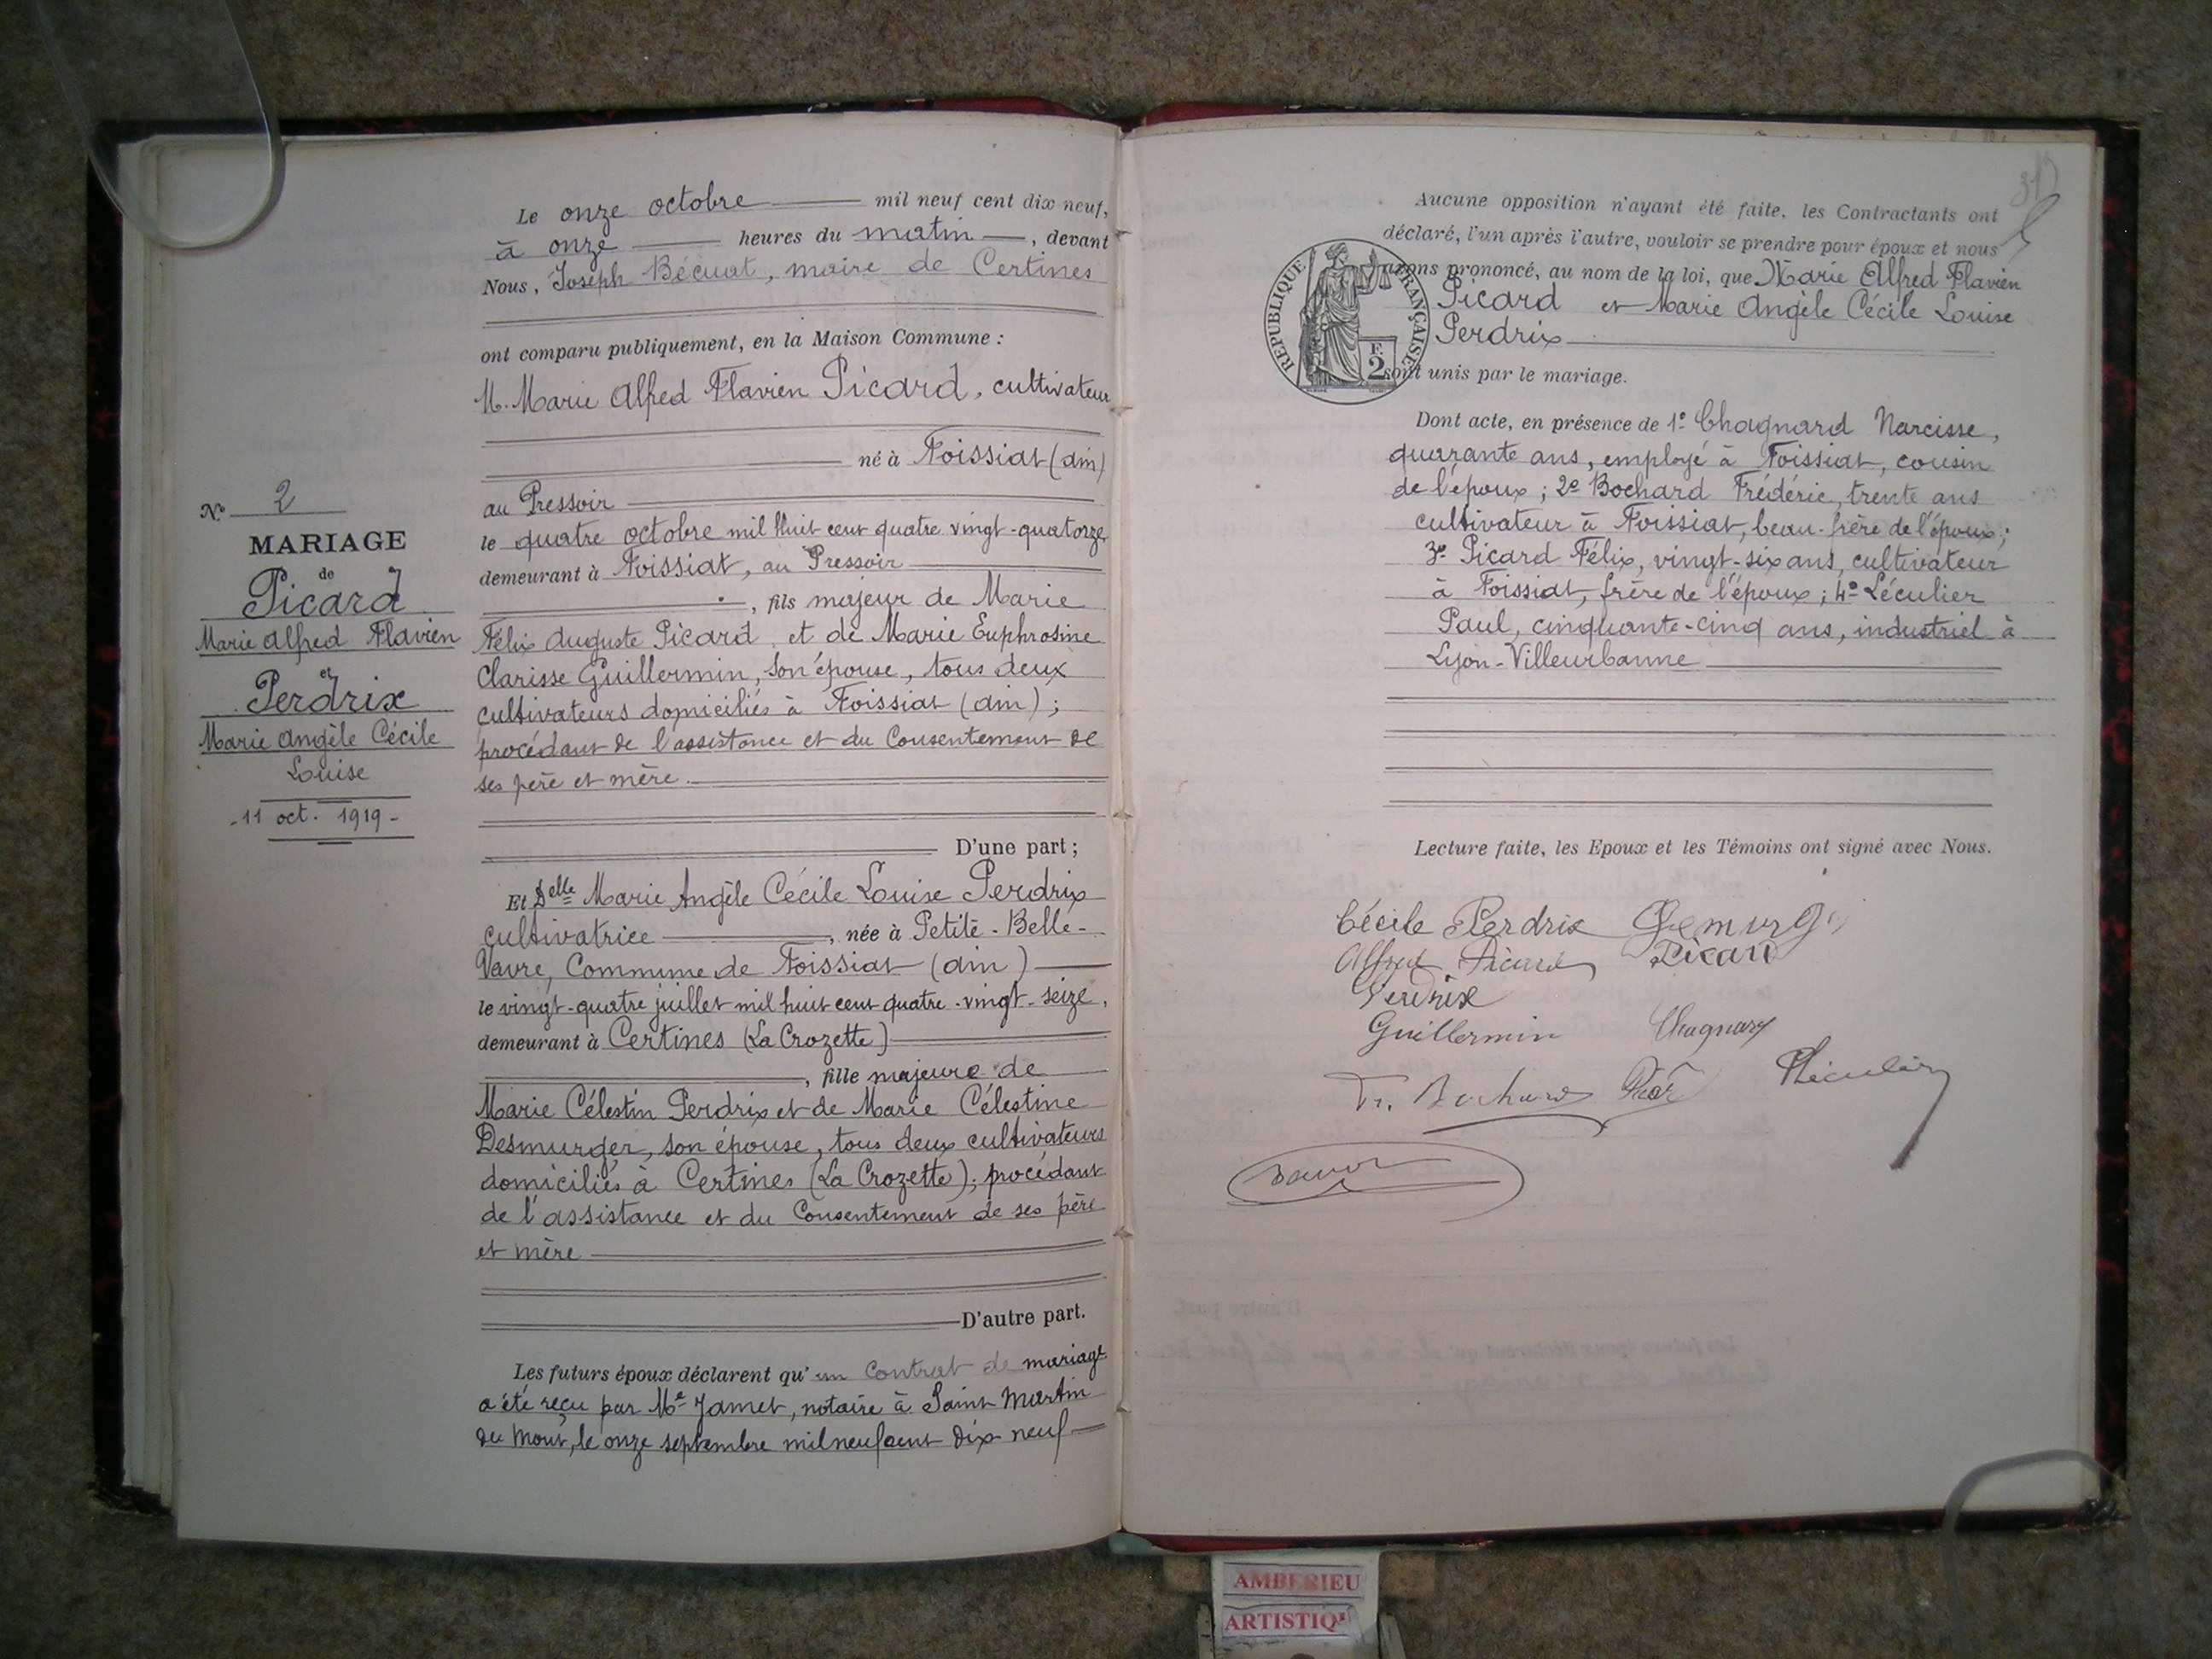 Le onze octobre mil neuf cent dix-neuf,
à onze heures du matin, devant
Nous, Joseph Bécuat, maire de Certines
ont comparu publiquement, en la Maison Commune :
M. Marie Alfred Flavien Picard, cultivateur
né à Foissiat (Ain)
au Pressoir
le quatre octobre mil huit cent quatre vingt-quatorze
demeurant à Foissiat, au Pressoir
, fils majeur de Marie
Félix Auguste Picard et de Marie Euphrosine
Clarisse Guillermin, son épouse, tous deux
cultivateurs domiciliés à Foissiat (Ain) ;
procédant de l'assistance et du Consentement de
ses père et mère.
D'une part ;
Et Delle Marie Angèle Cécile Louise Perdrix
cultivatrice, née à Petite-Belle-
Vavre, Commune de Foissiat (Ain)
le vingt-quatre juillet mil huit cent quatre-vingt-seize,
demeurant à Certines (La Crozette)
, fille majeure de
Marie Célestin Perdrix et de Marie Célestine
Desmurger, son épouse, tous deux cultivateurs
domiciliés à Certines (La Crozette); procédant
de l'assistance et du Consentement de ses père
et mère
D'autre part.
Les futurs époux déclarent qu'un Contrat de mariage
a été reçu par Me Jamet, notaire à Saint Martin
du Mont, le onze septembre mil neuf cent dix neuf
No 2
MARIAGE
de
Picard
Marie Alfred Flavien
et
Perdrix
Marie Angèle Cécile
Louise
- 11 oct. 1919 -
Aucune opposition n'ayant été faite, les Contractants ont
déclaré, l'un après l'autre, vouloir se prendre pour époux et nous
avons prononcé, au nom de la loi, que Marie Alfred Flavien
Picard et Marie Angèle Cécile Louise
Perdrix
sont unis par le mariage.
RÉPUBLIQUE FRANÇAISE
F.
2
Dont acte, en présence de 1° Chagnard Narcisse,
quarante ans, employé à Foissiat, cousin
de l'époux ; 2° Bochard Frédéric, trente ans
cultivateur à Foissiat, beau-frère de l'époux ;
3° Picard Félix, vingt-six ans, cultivateur
à Foissiat, frère de l'époux ; 4° Léculier
Paul, cinquante-cinq ans, industriel à
Lyon-Villeurbanne
Lecture faite, les Epoux et les Témoins ont signé avec Nous.
Cécile Perdrix
Alfred Picard Picard
Perdrix
Guillermin Chagnard
Fr. Bochard
PLéculier
AMBERIEU
ARTISTIQ